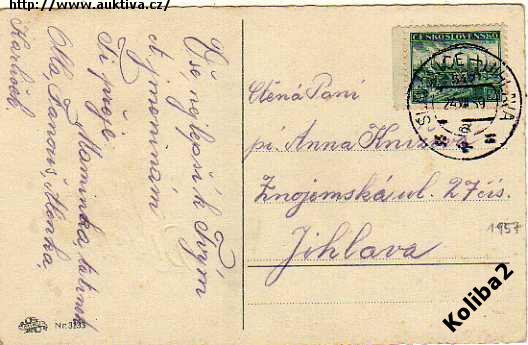 http://www.auktiva.cz/
Vše nejlepší k Tvým
Ti přejí
Maminka, tatínek
Olla, Fanouš, Alenka,
Karlíček.
ČESKOSLOVENSKO
Ctěná Paní
pí. Anna
Znojemská ul. 27 čís.
Jihlava
1957
Nr. 3133
Koliba2